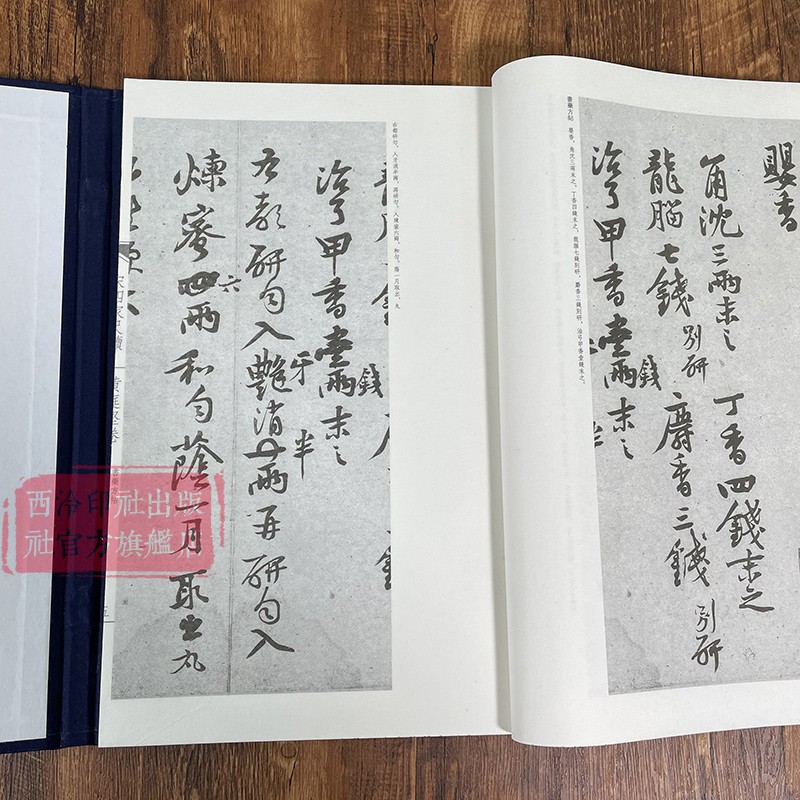 嬰香
角沈三兩末之 丁香四錢末之
龍腦七錢別研 麝香三錢別研
治弓甲香壹兩末之
錢
書藥方帖 嬰香,角沈三兩末之,丁香四錢末之,龍腦七錢別研,麝香三錢別研,治弓甲香壹錢末之,
右都研勻,入牙消半兩,再研勻,入煉蜜六兩,和勻,蔭一月取出,丸
治弓甲香壹兩末之
錢
牙 半
右都研勻入艷消兩再研勻入
六
煉蜜四兩和勻蔭一月取出丸
宋四家尺牘
黃庭堅卷
西泠印社出版
社官方旗艦店